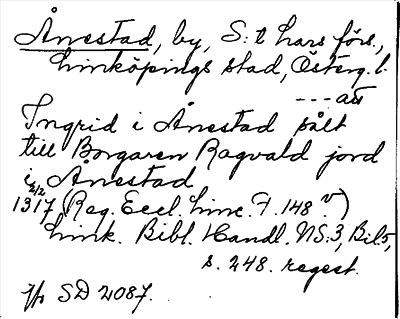 Ånestad, by, S:t Lars förs.,
Linköpings stad, Österg. l.
--- att
Ingrid i Ånestad sålt
till Borgaren Ragvald jord
i Ånestad
2/2
1317 (Reg. Eccl. Linc. F. 148 v.)
Link. Bibl. Handl. NS:3, Bil 5,
s. 248. regest.
Jfr SD 2087.